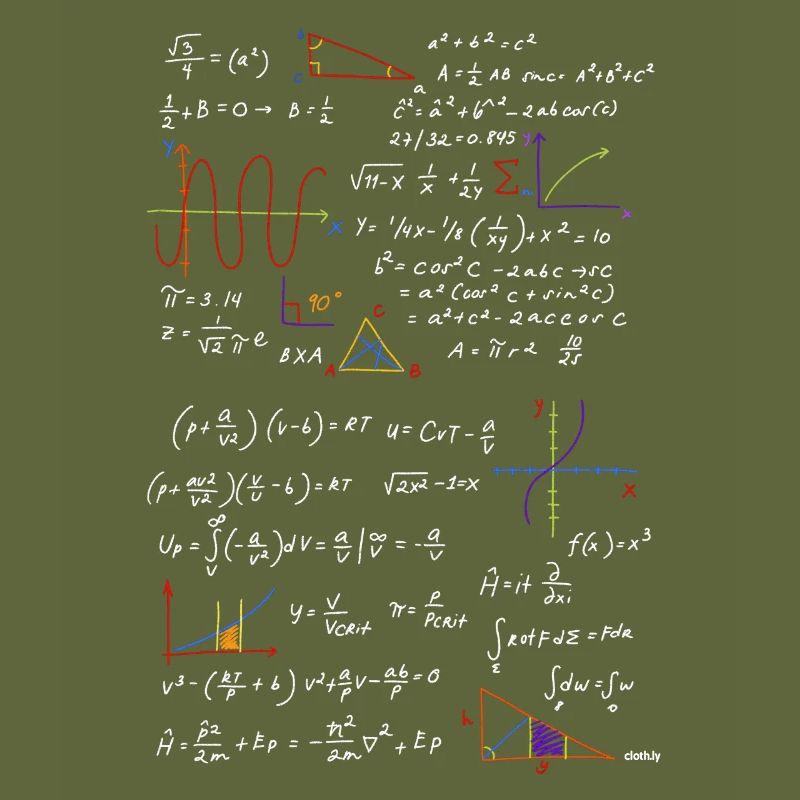 √3/4 = (a²)
b
c
a
a² + b² = c²
A = 1/2 AB sin c = A² + B² + C²
1/2 + B = 0 → B = 1/2
ĉ² = â² + b^² - 2ab cos(c)
27/32 = 0.845
y
x
Y
X
√11-x 1/x + 1/2y Σ n
Y = 1/4x - 1/8 (1/xy) + x² = 10
b² = cos²C - 2abc → sc
= a² (cos² c + sin²c)
= a² + c² - 2ac cos C
π = 3.14
90°
z = 1/√2π e
BXA
C
A
B
A = π r 2 10/25
(p + a/v²) (v - b) = RT
u = CvT - a/v
y
x
(p + av2/v²) (v/u - b) = kT
√2x² - 1 = x
Up = ∫ᵥ^∞ (-a/v²) dv = a/v |ᵥ^∞ = -a/v
f(x) = x³
Ĥ = it ∂/∂xi
y = V/VCRit
π = P/PCRit
∫Σ Rot F dΣ = FdR
v³ - (RT/p + b) v² + a/p v - ab/p = 0
∫ dw = ∫ w
Ĥ = p̂2/2m + Ep = -ℏ²/2m ∇² + Ep
h
y
cloth.ly